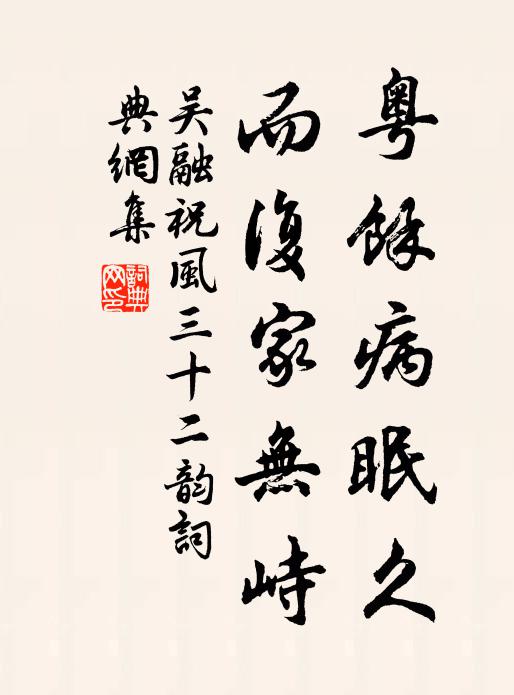 粵餘病眠久
而復家無峙
吳融祝風三十二韵詞
典網集
詞典網印